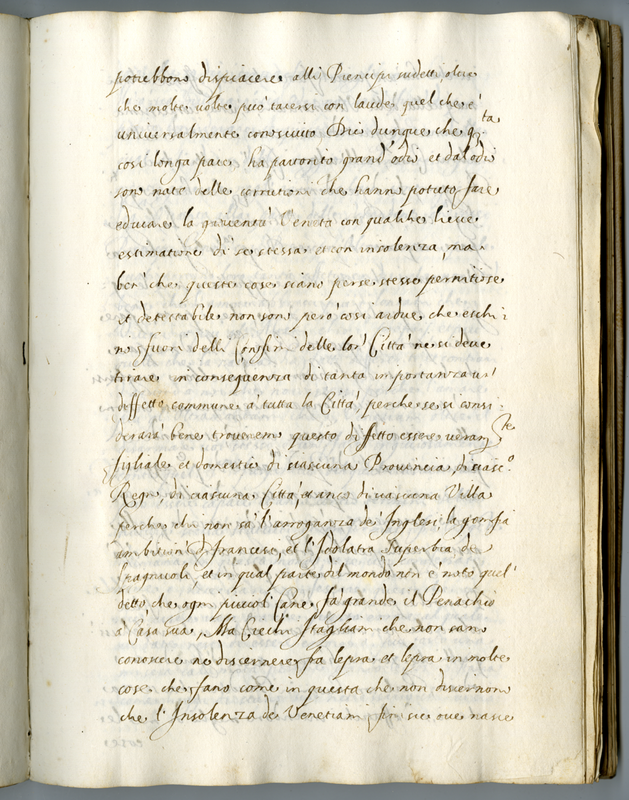 potrebbono dispiacere alli Prencipi sudetti, oltre
che molte volte può tacersi con laude quel che è
universalmente conosciuto Dico dunque che q.ta
così longa pace, ha partorito grand'odio et dal odio
sono nate delle corrutioni che hanno potuto fare
educare la gioventù Veneta con qualche lieve
estimatione di se stessa et con insolenza, ma
ben'che queste cose siano per se stesse pernitiose
et detestabile non sono però così ardue che eschi:
no fuori delli Confini delle lor' Città ne si deve
tirare in conseguenza di tanta importanza un'
diffetto commune à tutta la Città, perche se si consi:
derarà bene troveremo questo diffetto essere veram.te
figliale et domestico di ciascuna Provincia, di ciasc.o
Regno, di ciascuna Città, et anco di ciascuna Villa
perche chi non sà l'arroganza de Inglesi, la gonfia
ambition' di francesi, et l'Idolatra Superbia de
Spagnuoli, et in qual parte del mondo non è noto quel'
detto, che ogni piccol' Cane, fà grande il Penachio
à Casa sua, Ma Ciechi Itagliani che non sano
conoscere ne discernere fra lepra et lepra in molte
cose che fano come in questa che non discernono
che l'Insolenza de Venetiani, fin' sic ove nasce